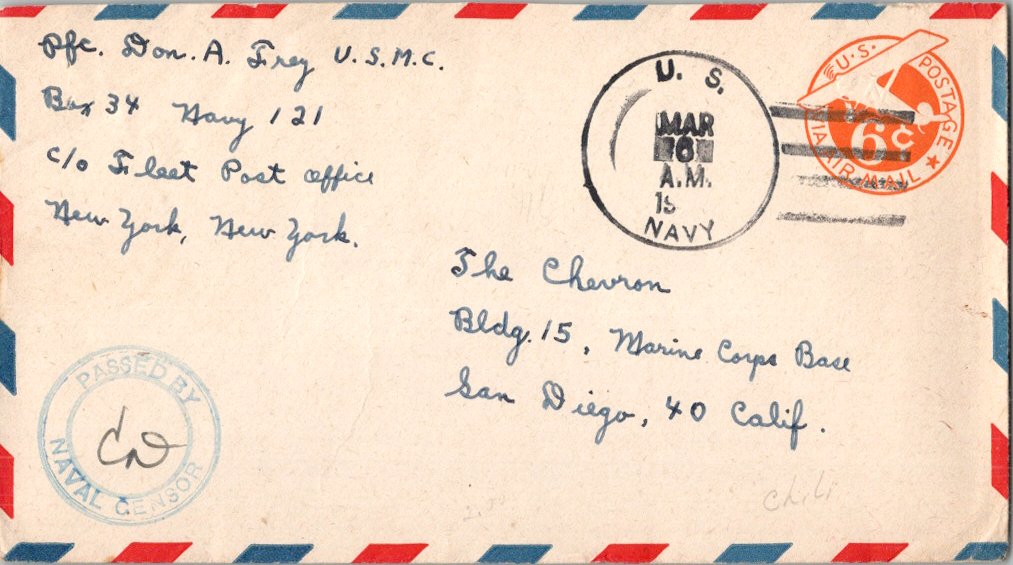 Pfc. Don. A. Frey U.S.M.C.
Box 34 Navy 121
c/o Fleet Post office
New York, New York.
U. S.
MAR
6
A.M.
19
NAVY
U.S. POSTAGE
6¢
VIA AIR MAIL
The Chevron
Bldg. 15, Marine Corps Base
San Diego, 40 Calif.
PASSED BY
NAVAL CENSOR
Chili